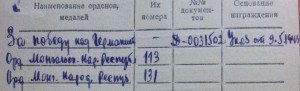 Наименование орденов, медалей
Их номера
№№ документов
Основание награждения
За победу над Германией - Д-0031502 Указ от 9.5.1945
Орд. Монгольск. Нар. Респуб. 113
Орд. Монг. Народ. Респуб. 131